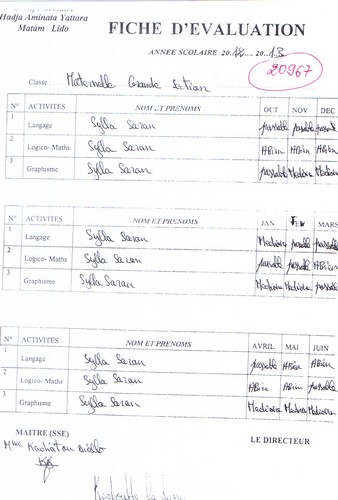 Hadja Aminata Yattara
Matam Lido
FICHE D'EVALUATION
ANNEE SCOLAIRE 2012.... 2013
20967
Classe Maternelle Grande Section
N° ACTIVITES NOM ET PRENOMS OCT NOV DEC
1 Langage Sylla Saran passable passable passable
2 Logico- Maths Sylla Saran ABien ABien ABien
3 Graphisme Sylla Saran passable Mediocre Mediocre
N° ACTIVITES NOM ET PRENOMS JAN FEV MARS
1 Langage Sylla Saran Mediocre passable passable
2 Logico- Maths Sylla Saran passable passable ABien
3 Graphisme Sylla Saran Mediocre Mediocre passable
N° ACTIVITES NOM ET PRENOMS AVRIL MAI JUIN
1 Langage Sylla Saran passable ABien ABien
2 Logico- Maths Sylla Saran ABien ABien passable
3 Graphisme Sylla Saran Mediocre Mediocre Mediocre
MAITRE (SSE) LE DIRECTEUR
Mme Kadiatou Diallo